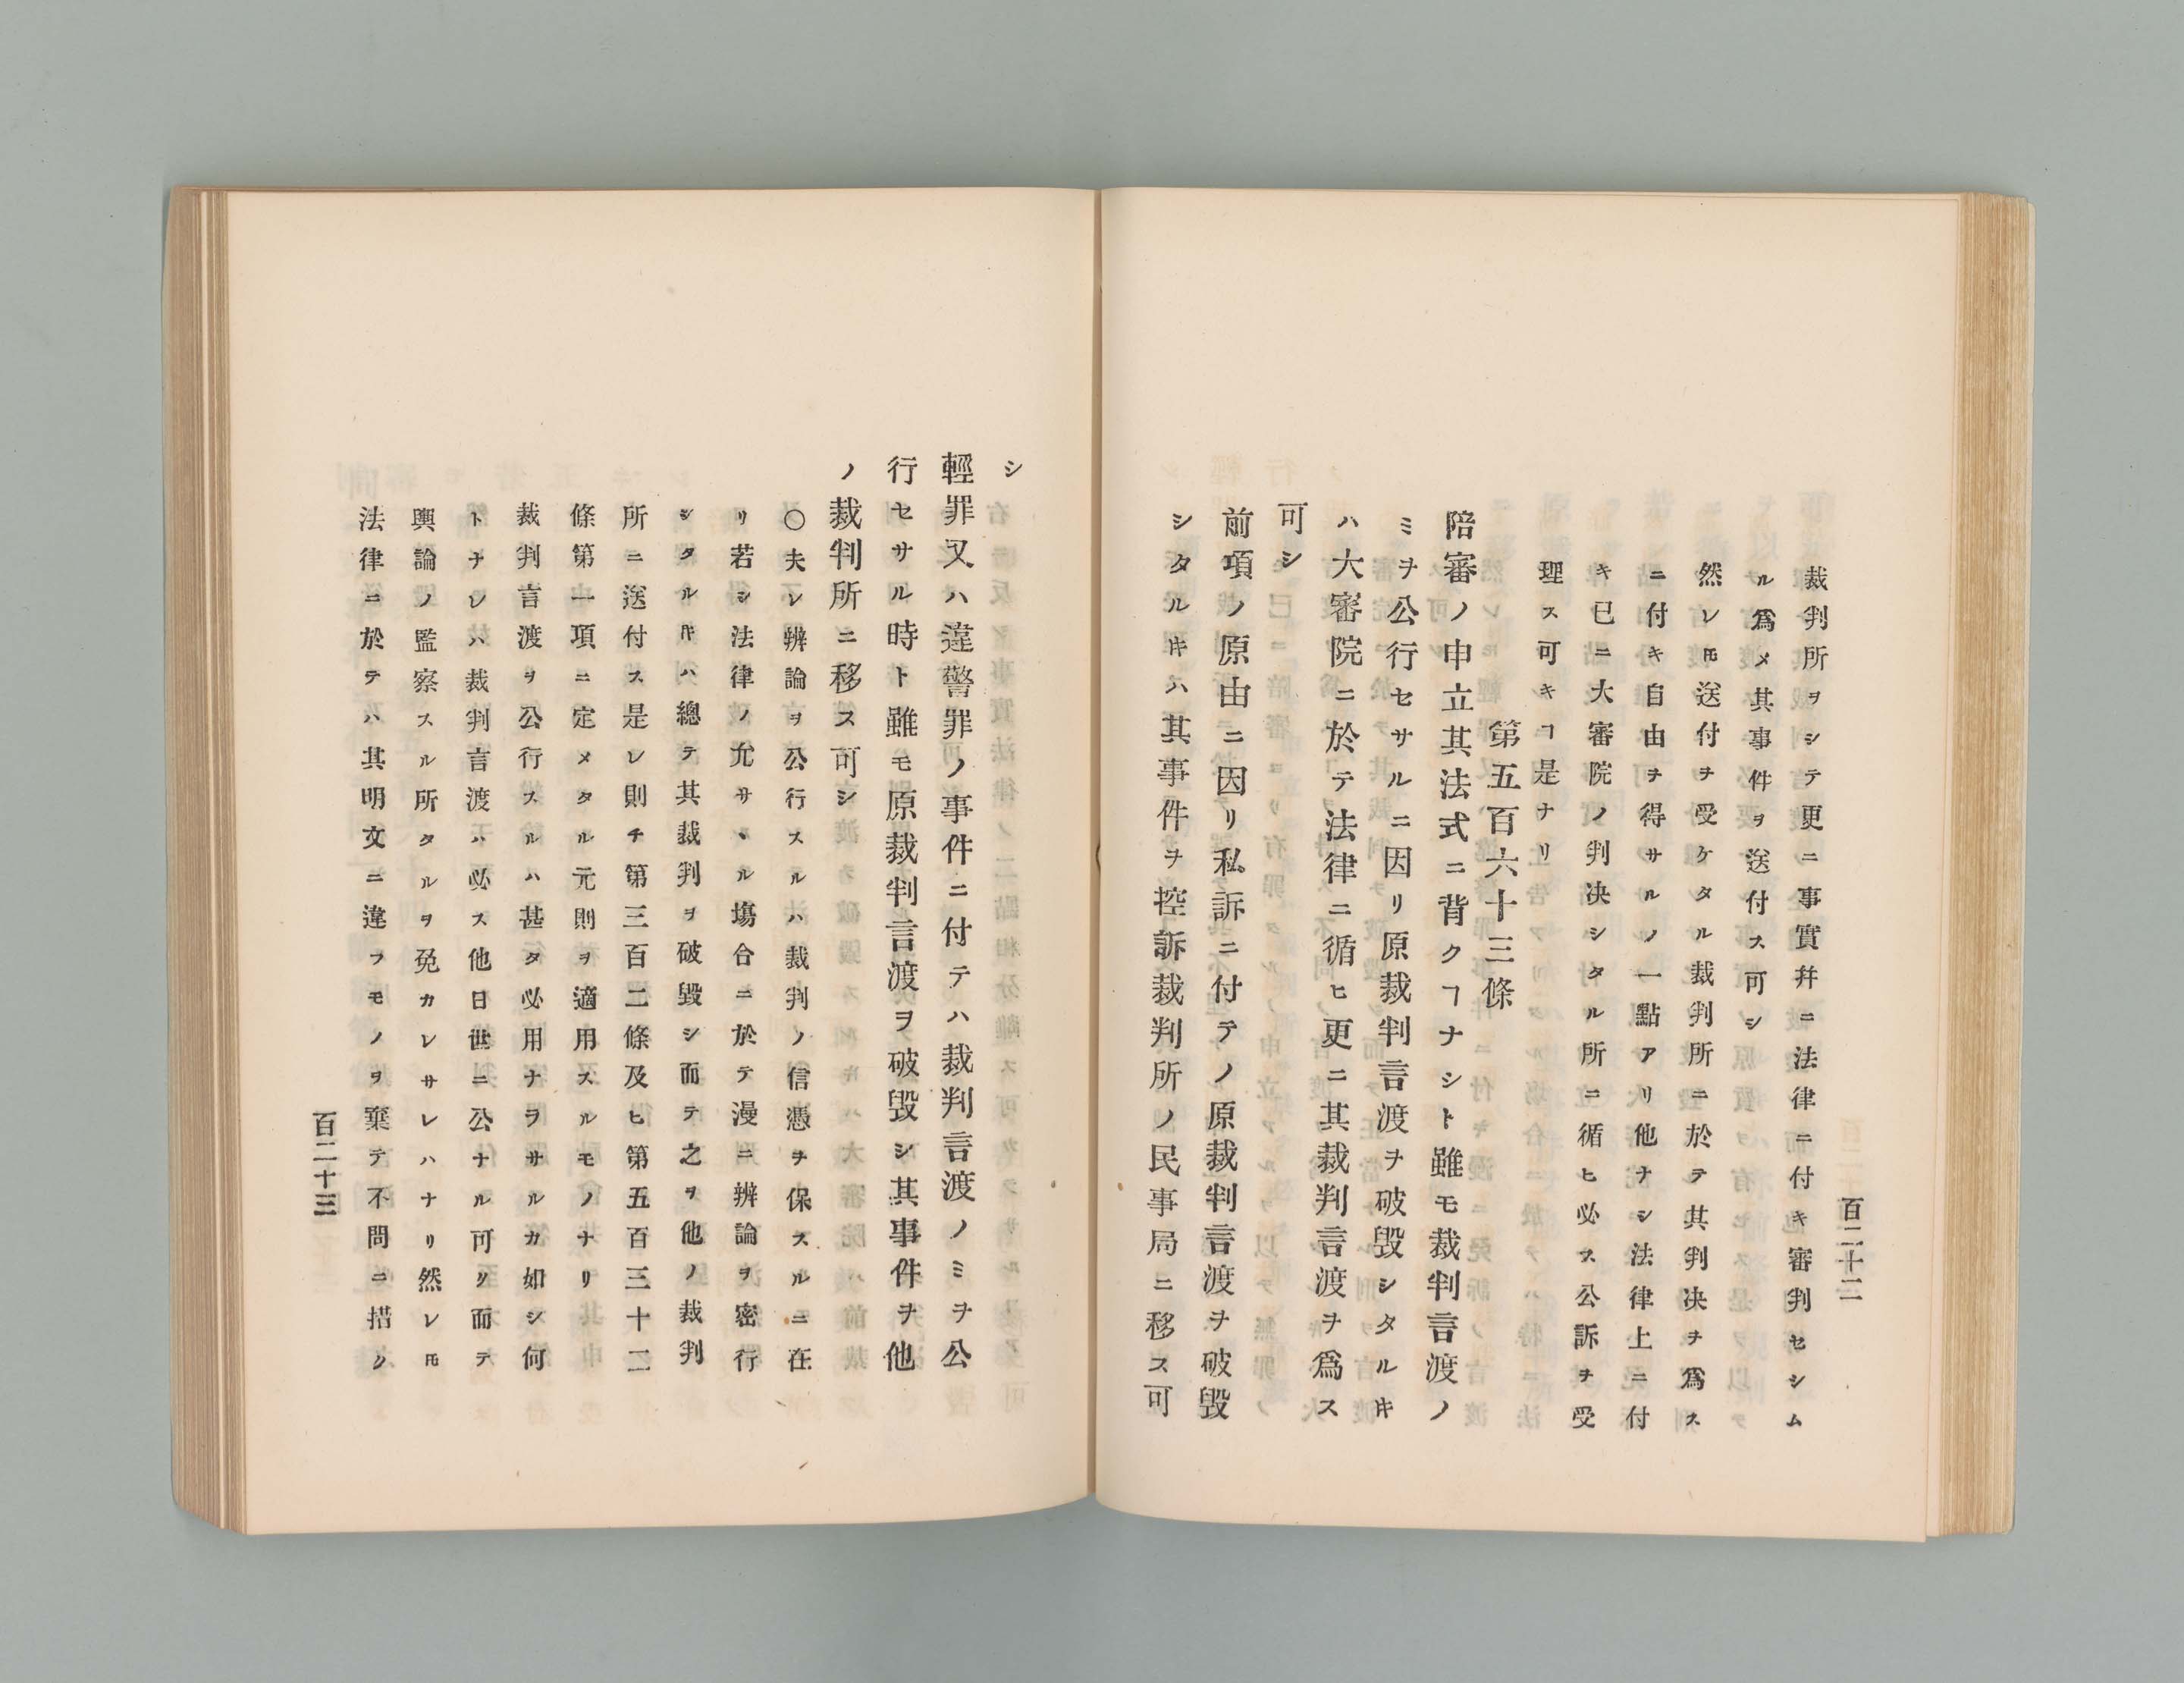 百二十二
裁判所ヲシテ更ニ事實幷ニ法律ニ付キ審判セシム
ル爲メ其事件ヲ送付ス可シ
然レ𪜈送付ヲ受ケタル裁判所ニ於テ其判决ヲ爲ス
ニ付キ自由ヲ得サルノ一點アリ他ナシ法律上ニ付
キ已ニ大審院ノ判决シタル所ニ循ヒ必ス公訴ヲ受
理ス可キヿ是ナリ
第五百六十三條
陪審ノ申立其法式ニ背クヿナシト雖モ裁判言渡ノ
ミヲ公行セサルニ因リ原裁判言渡ヲ破毀シタルキ
ハ大審院ニ於テ法律ニ循ヒ更ニ其裁判言渡ヲ爲ス
可シ
前項ノ原由ニ因リ私訴ニ付テノ原裁判言渡ヲ破毀
シタル𪜈ハ其事件ヲ控訴裁判所ノ民事局ニ移ス可
シ
輕罪又ハ違警罪ノ事件ニ付テハ裁判言渡ノミヲ公
行セサル時ト雖モ原裁判言渡ヲ破毀シ其事件ヲ他
ノ裁判所ニ移ス可シ
〇夫レ辨論ヲ公行スルハ裁判ノ信憑ヲ保スルニ在
リ若シ法律ノ允サヽル塲合ニ於テ漫ニ辨論ヲ密行
シタルキハ總テ其裁判ヲ破毀シ而テ之ヲ他ノ裁判
所ニ送付ス是レ則チ第三百二條及ヒ第五百三十二
條第一項ニ定メタル元則ヲ適用スルモノナリ
裁判言渡ヲ公行スルハ甚タ必用ナラサルカ如シ何
トナレハ裁判言渡ハ必ス他日世ニ公ナル可ク而テ
輿論ノ監察スル所タルヲ免カレサレハナリ然レ𪜈
法律ニ於テハ其明文ニ違フモノヲ棄テ不問ニ措ク
百二十三